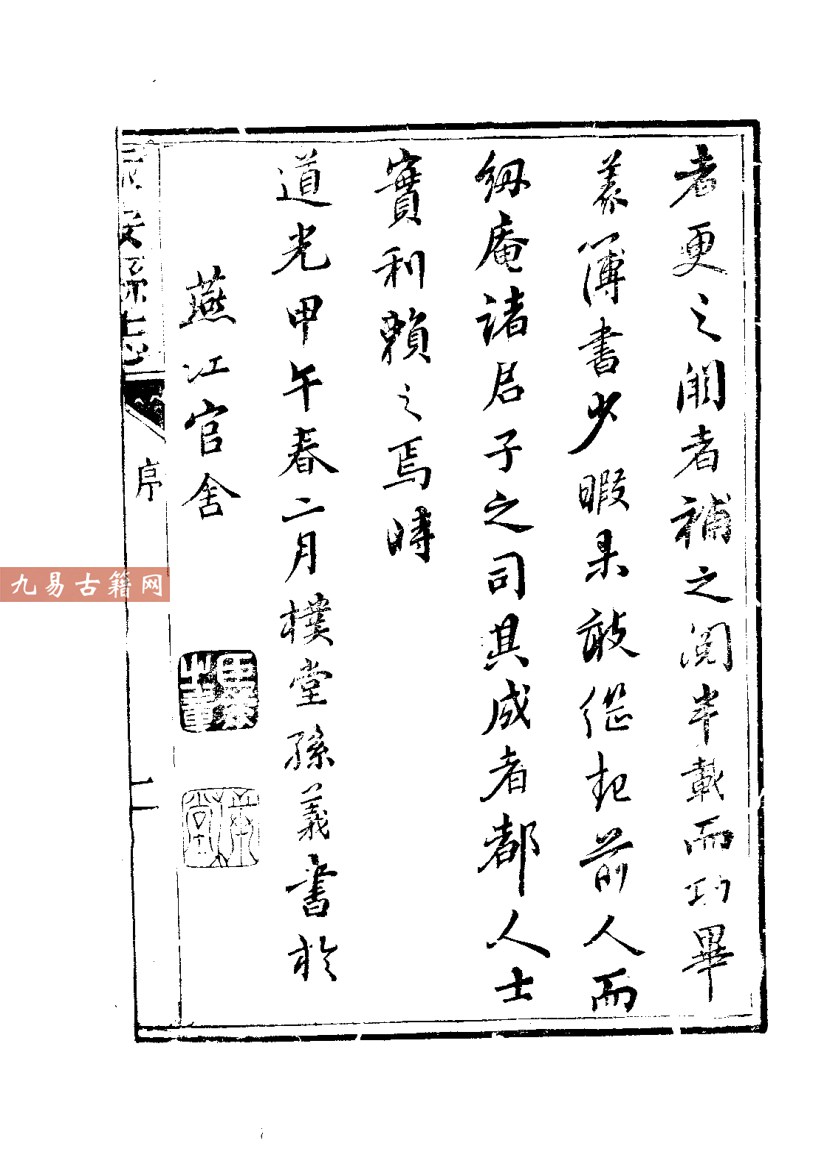 者更之闕者補之閱半載而功畢
義簿書少暇果敢從起前人而
紉庵諸君子之司其成者都人士
實利賴之焉時
道光甲午春二月樸堂孫義書於
燕江官舍
縣志
序
二
九易古籍网